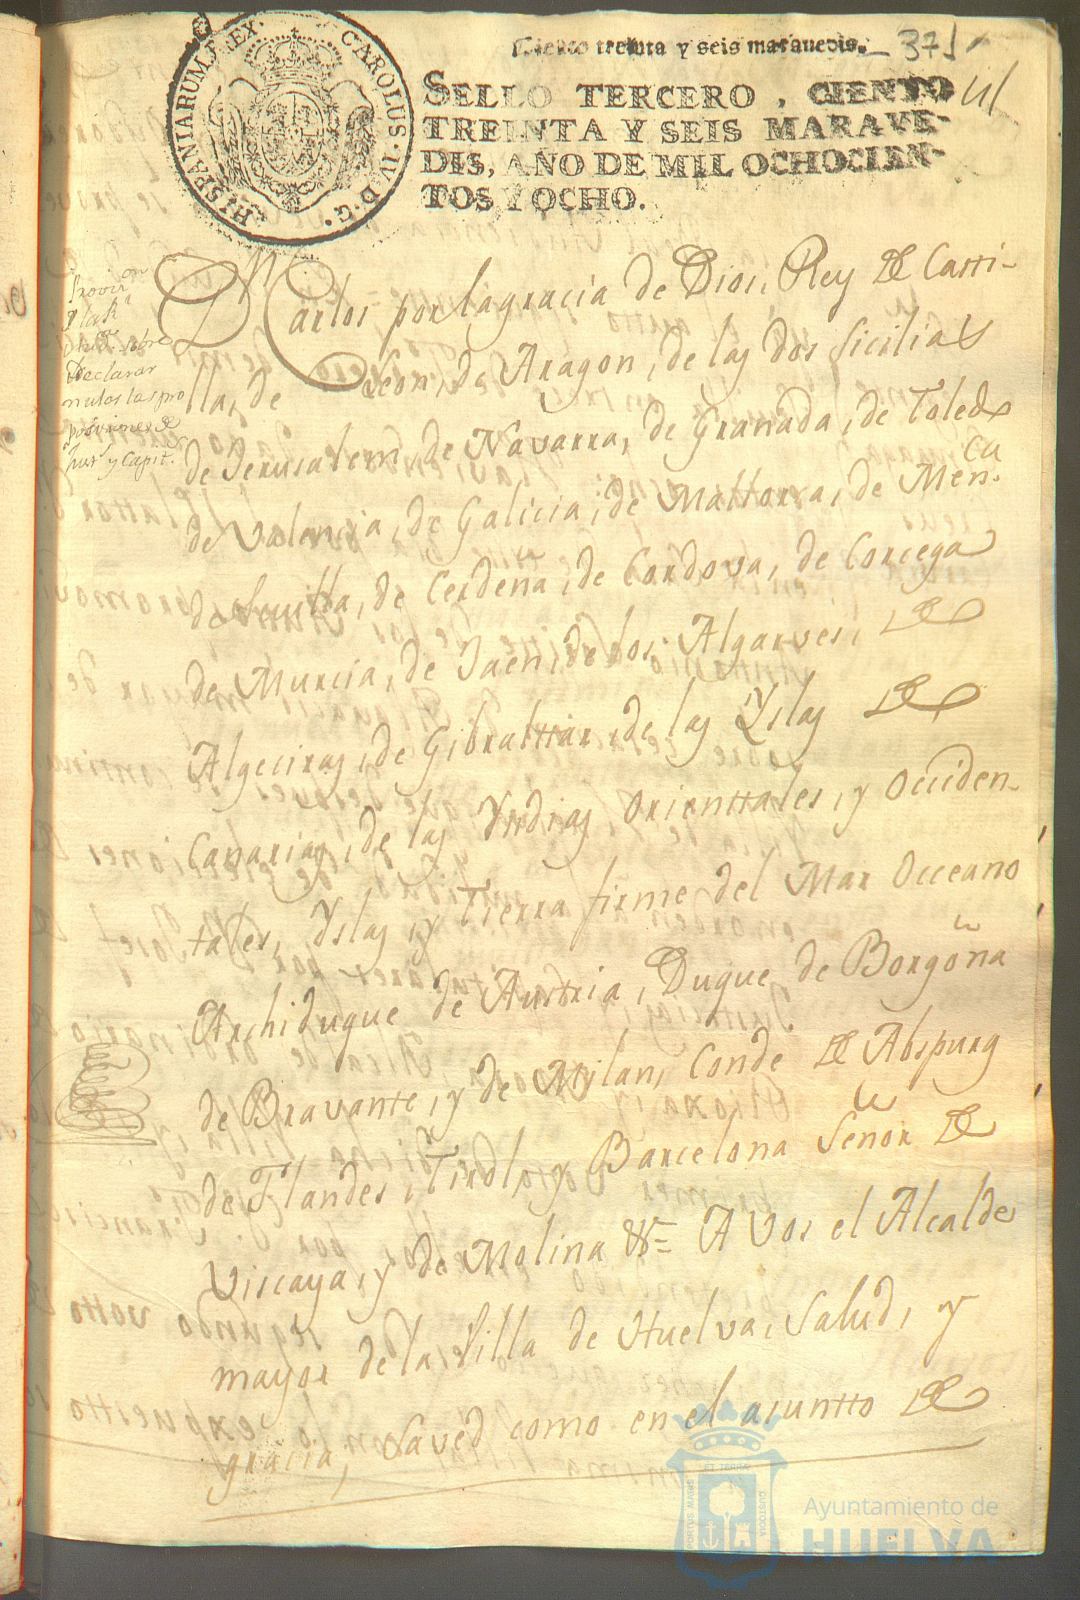 Ciento treinta y seis maravedis.
371
HISPANIARUM REX. CAROLUS · IV · D · G ·
SELLO TERCERO, CIENTO
TREINTA Y SEIS MARAVE-
DIS, AÑO DE MIL OCHOCIEN-
TOS Y OCHO.
Provi.on
sobre
Declarar
nulos las pro
posiciones de
Jus.s y Capit.s
Dn Carlos por la gracia de Dios, Rey de Casti-
lla, de Leon, de Aragon, de las dos Sicilias
de Jerusalem, de Navarra, de Granada, de Toledo
de Valencia, de Galicia, de Mallorca, de Menorca
de Sevilla, de Cerdeña, de Cordova, de Corcega
de Murcia, de Jaen, de los Algarves, de
Algeciras, de Gibralttar, de las Yslas de
Canarias, de las Yndias Orienttales, y Occiden-
tales, Yslas, y Tierra firme del Mar Occeano
Archiduque de Austria, Duque de Borgoña
de Bravante, y de Milan, Conde de Abspurg
de Flandes, Tirol, y Barcelona Señor de
Viscaya, y de Molina &c.= A Vos el Alcalde
mayor de la Villa de Huelva, Salud, y
gracia, Saved como en el asuntto de
PORTUS MARIS ET TERRAE CUSTODIA
Ayuntamiento de
HUELVA